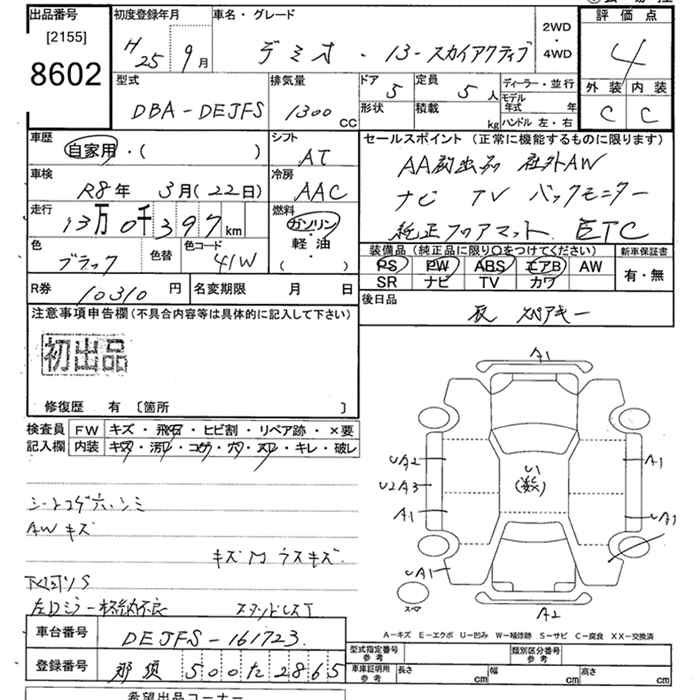 出品番号
[2155]
8602
初度登録年月
H25 9月
車名・グレード
デミオ・13-スカイアクティブ
2WD
4WD
評価点
4
外装 内装
C C
型式
DBA-DEJFS
排気量
1300 CC
ドア 5
形状
定員 5人
積載 kg
ディーラー・並行
モデル年式 年
ハンドル 左・右
車歴
自家用・( )
シフト
AT
車検
R8年 3月(22日)
冷房
AAC
走行
13万0千397km
燃料
ガソリン
軽・油
( )
色
ブラック
色替
色コード
41W
R券 10310円
名変期限 月 日
セールスポイント(正常に機能するものに限ります)
AA初出品 社外AW
ナビ TV バックモニター
純正フロアマット ETC
装備品(純正品に限り○をつけてください)
PS PW ABS エアB AW
SR ナビ TV カワ
新車保証書
有・無
後日品
注意事項申告欄(不具合内容等は具体的に記入して下さい)
初出品
修復歴 有 〔箇所 〕
検査員
記入欄
FW キズ・飛石・ヒビ割・リペア跡・×要
内装 キズ・汚レ・コゲ・穴・スレ・キレ・破レ
AWキズ
左ドミラー格納不良
A1
UA2
U2A3
A1
UA1
A1
A2
A-キズ E-エクボ U-凹み W-補修跡 S-サビ C-腐食 XX-交換済
車台番号 DEJFS-161723
登録番号 那須500た2865
型式指定番号
参考
類別区分番号
参考
車庫証明用
参考
長さ cm
幅 cm
高さ cm
希望出品コーナー